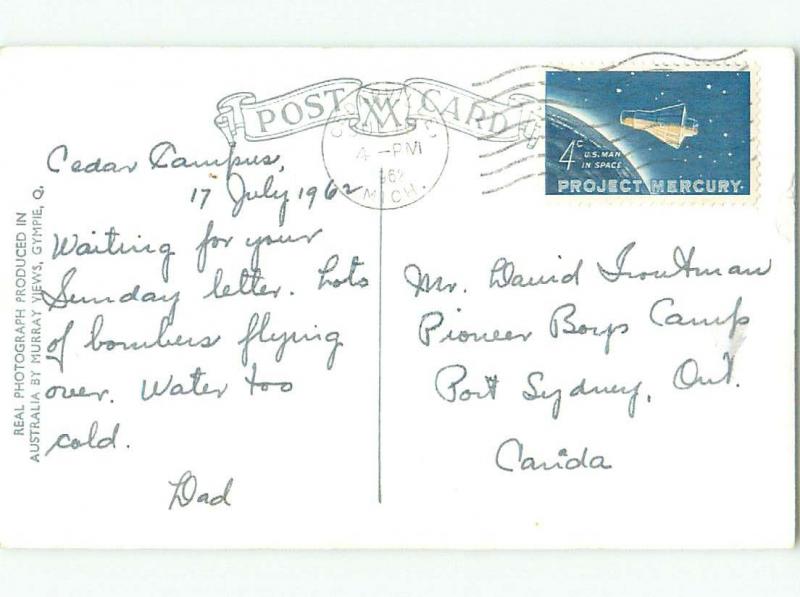 POST CARD
4-PM
1962
MICH.
4c
U.S. MAN
IN SPACE
PROJECT MERCURY
Cedar Campus,
17 July 1962
Waiting for your
Sunday letter. Lots
of bombers flying
over. Water too
cold.
Dad
Mr. David Troutman
Pioneer Boys Camp
Port Sydney, Ont.
Canida
REAL PHOTOGRAPH PRODUCED IN
AUSTRALIA BY MURRAY VIEWS, GYMPIE, Q.